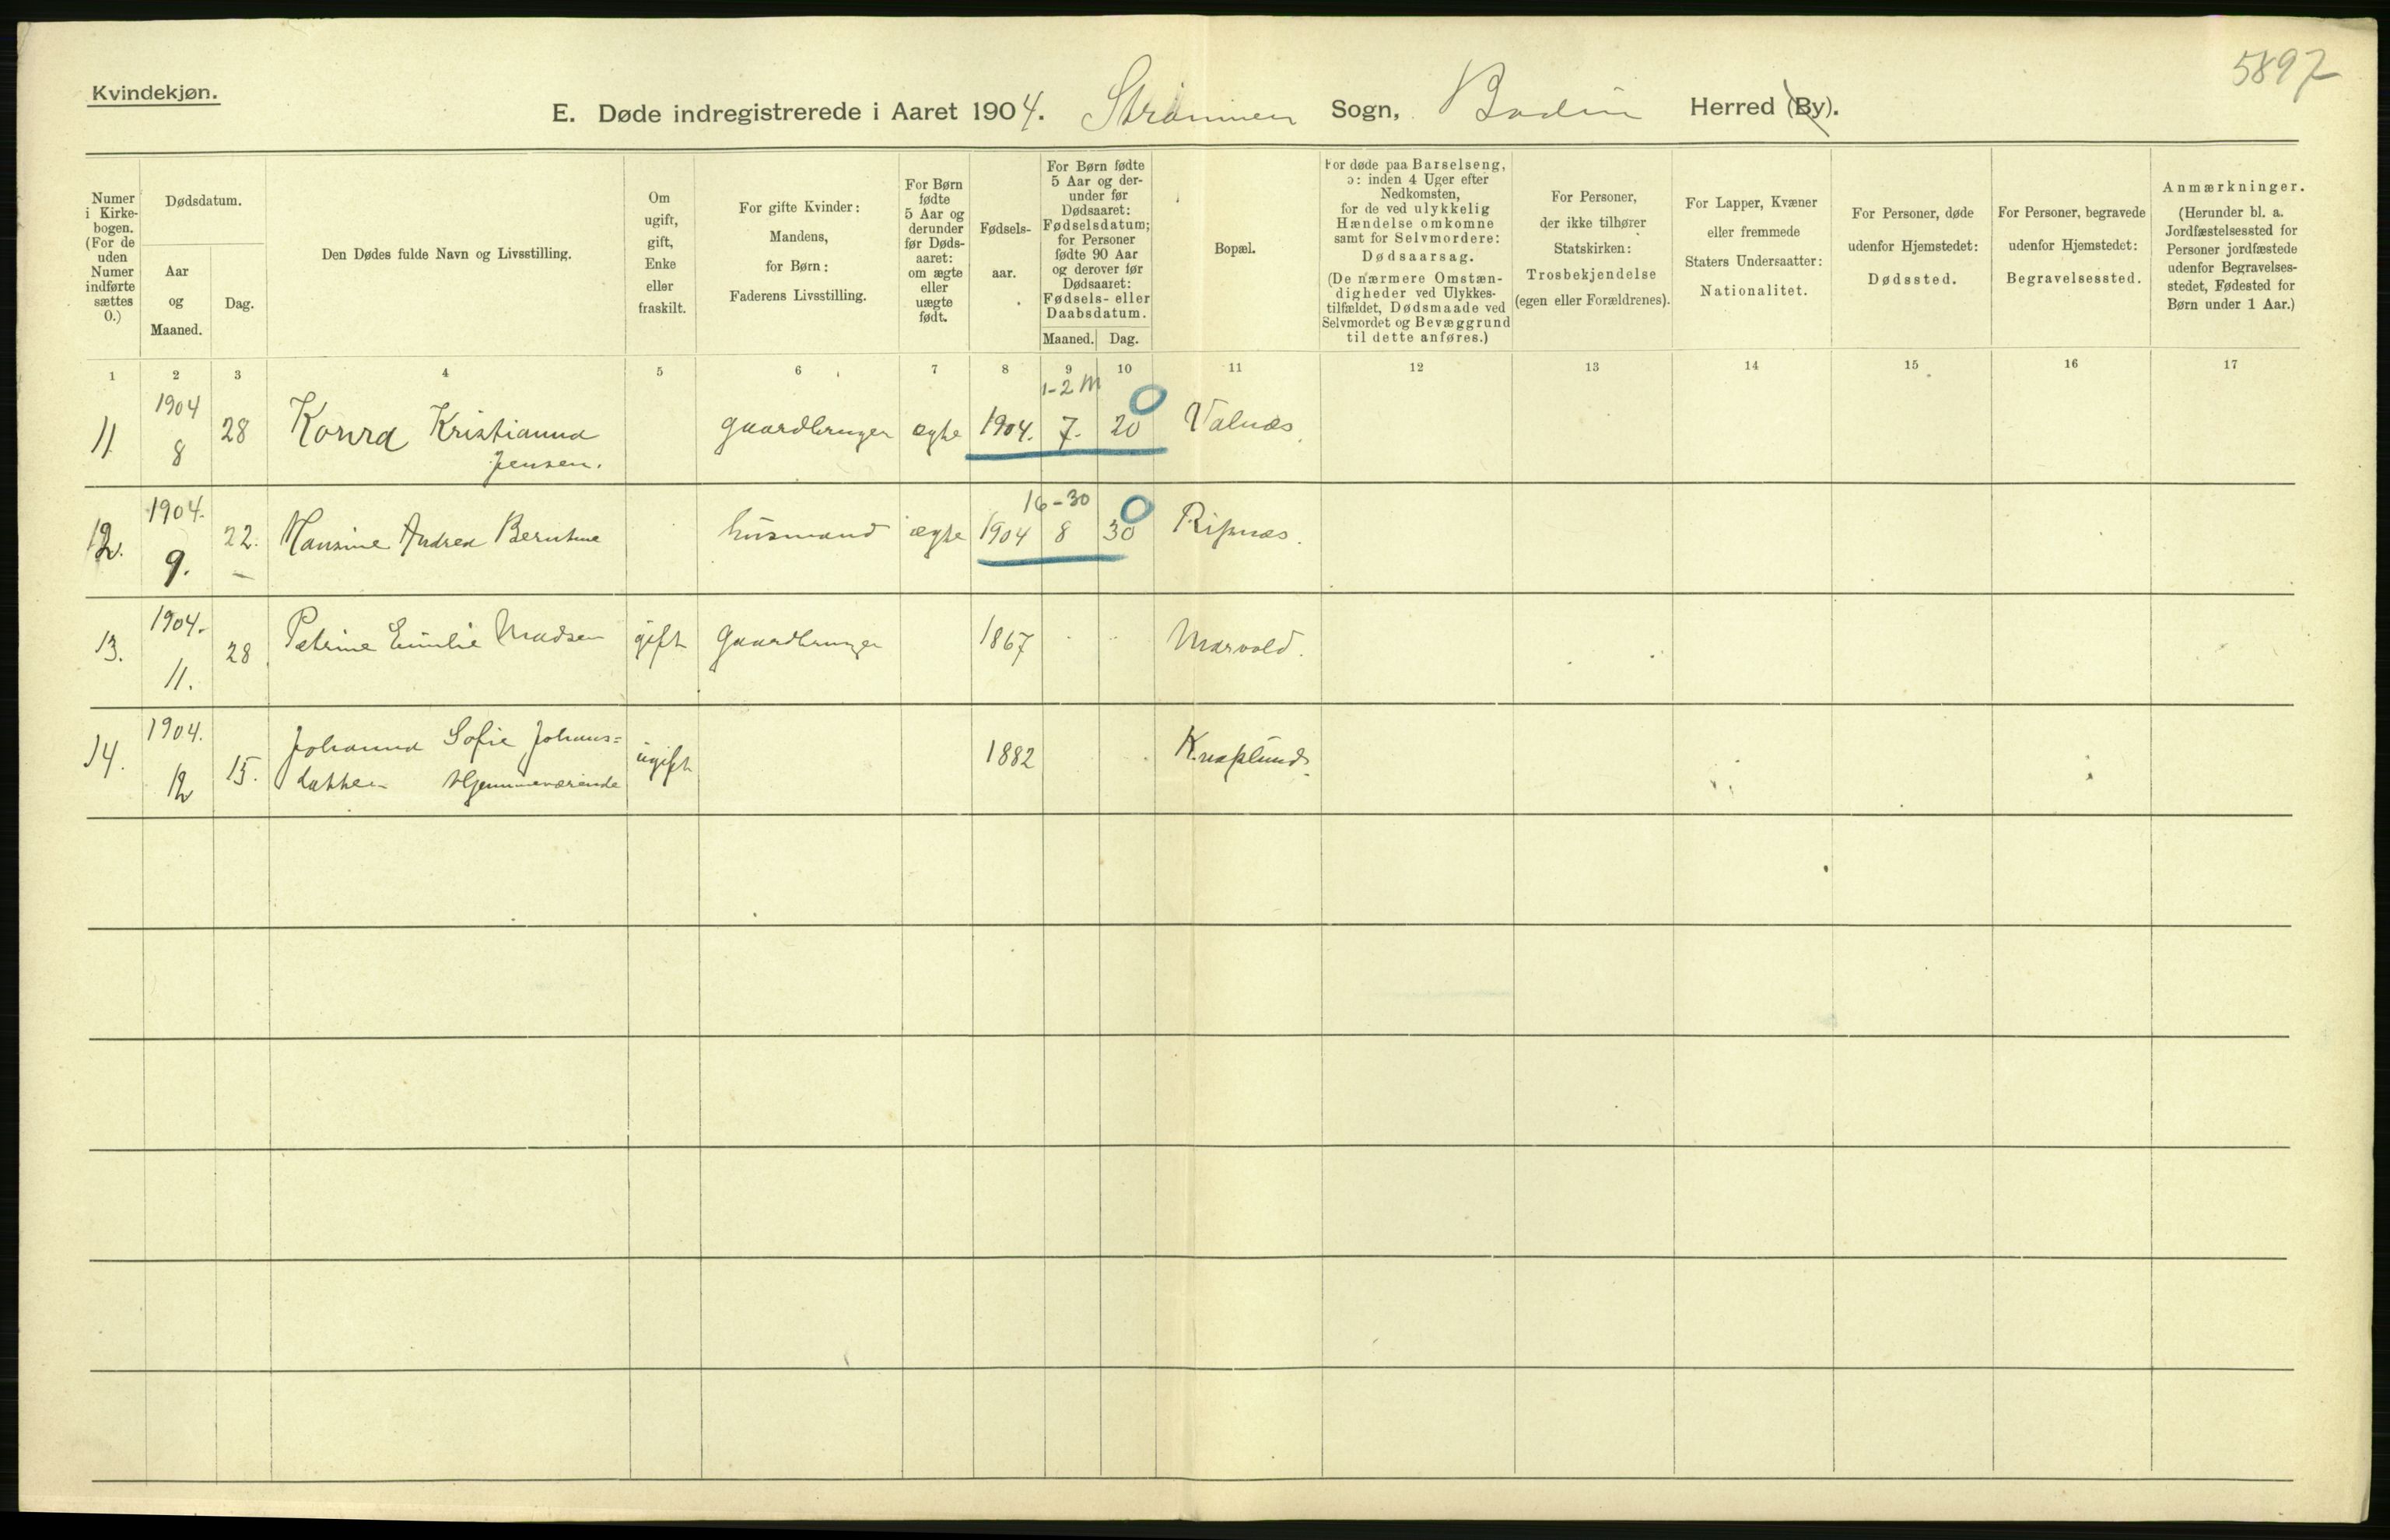 5897
Kvindekjøn.
E. Døde indregistrerede i Aaret 1904. Strømmen Sogn, Bodin Herred (By).
Numer
i Kirke-
bogen.
(For de
uden
Numer
indførte
sættes
0.)
Dødsdatum.
Aar
og
Maaned.
Dag.
Den Dødes fulde Navn og Livsstilling.
Om
ugift,
gift,
Enke
eller
fraskilt.
For gifte Kvinder:
Mandens,
for Børn:
Faderens Livsstilling.
For Børn
fødte
5 Aar og
derunder
før Døds-
aaret:
om ægte
eller
uægte
født.
Fødsels-
aar.
For Børn fødte
5 Aar og der-
under før
Dødsaaret:
Fødselsdatum;
for Personer
fødte 90 Aar
og derover før
Dødsaaret:
Fødsels- eller
Daabsdatum.
Maaned. Dag.
Bopæl.
For døde paa Barselseng,
ɔ: inden 4 Uger efter
Nedkomsten,
for de ved ulykkelig
Hændelse omkomne
samt for Selvmordere:
Dødsaarsag.
(De nærmere Omstæn-
digheder ved Ulykkes-
tilfældet, Dødsmaade ved
Selvmordet og Bevæggrund
til dette anføres.)
For Personer,
der ikke tilhører
Statskirken:
Trosbekjendelse
(egen eller Forældrenes).
For Lapper, Kvæner
eller fremmede
Staters Undersaatter:
Nationalitet.
For Personer, døde
udenfor Hjemstedet:
Dødssted.
For Personer, begravede
udenfor Hjemstedet:
Begravelsessted.
Anmærkninger.
(Herunder bl. a.
Jordfæstelsessted for
Personer jordfæstede
udenfor Begravelses-
stedet, Fødested for
Børn under 1 Aar.)
1 2 3 4 5 6 7 8 9 10 11 12 13 14 15 16 17
1904 1-2 M 0
11 8 28 Konra Kristianna gaardbruger ægte 1904. 7. 20 Valnæs
Jensen.
1904. 16-30 0
12. 9. 22. Hansine Andrea Berntine husmand ægte 1904 8 30 Ripnæs.
1904.
13. 11. 28 Petrine Emilie Madsen gift gaardbruger 1867 Marvold.
1904.
14. 12 15. Johanna Sofie Johans= ugift 1882 Knaplund.
datter Hjemmeværende